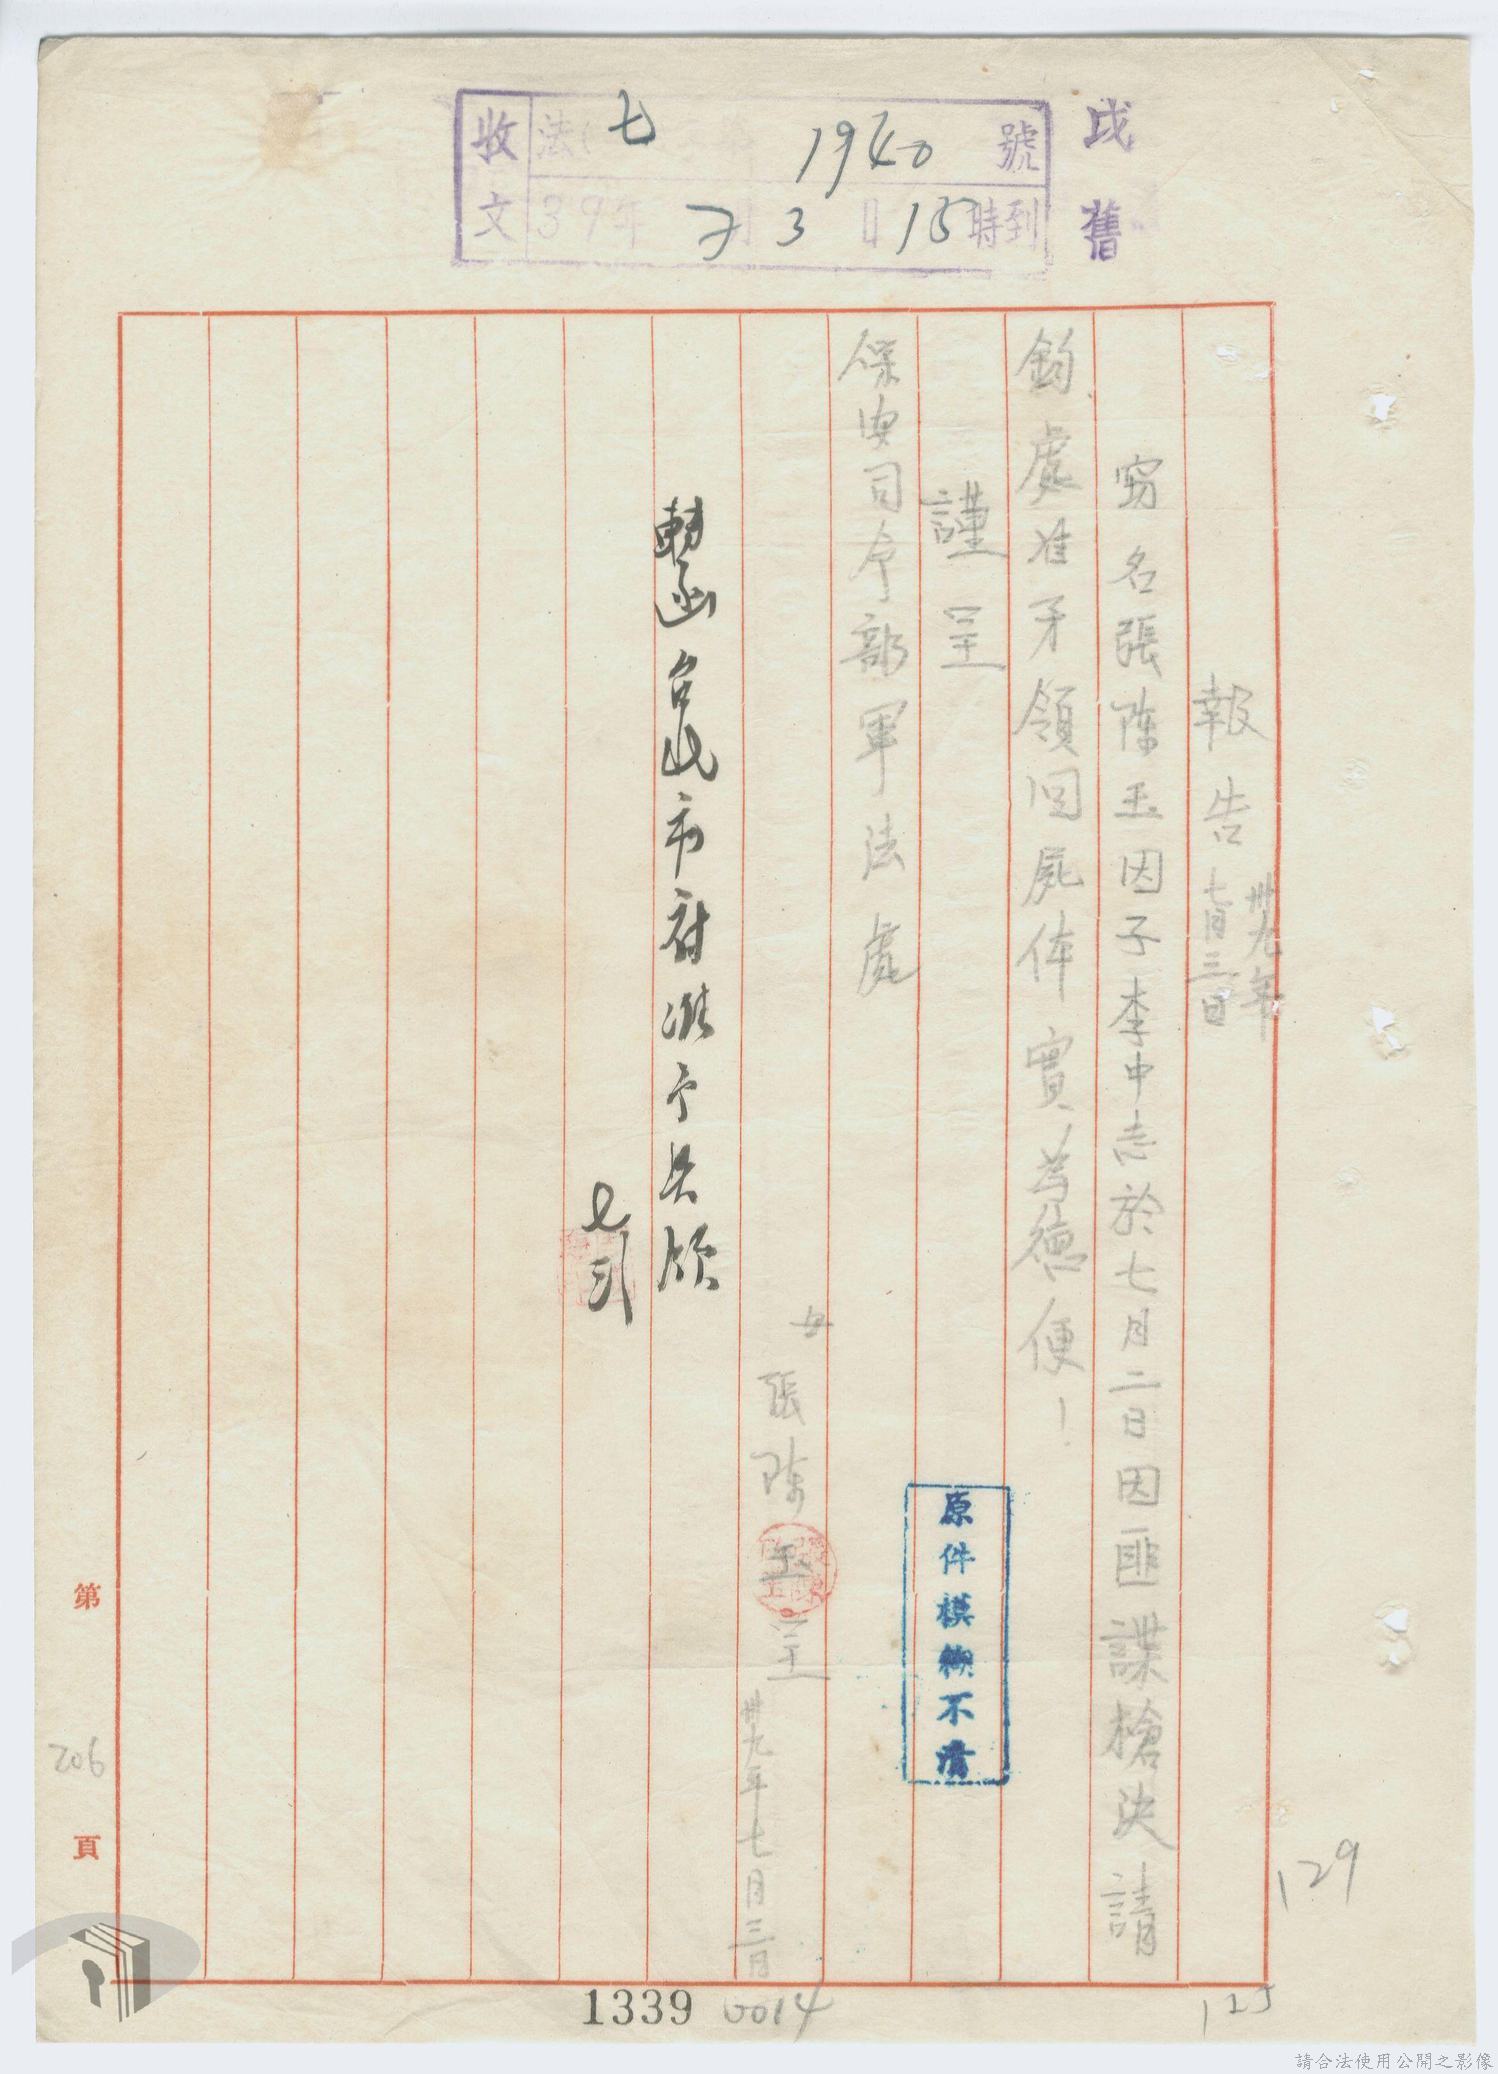 戌
舊
收文
法 七 1940 號
39年 7月3日15時到
報告
卅九年
七月三日
竊名張陳玉因子李中志於七月二日因匪諜槍決請
鈞處准予領回屍体實為德便！
謹呈
保安司令部軍法處
母
張陳玉呈
卅九年七月三日
轉函台北市府准予具領
七
原件模糊不清
第
206
頁
129
125
1339
0014
請合法使用公開之影像